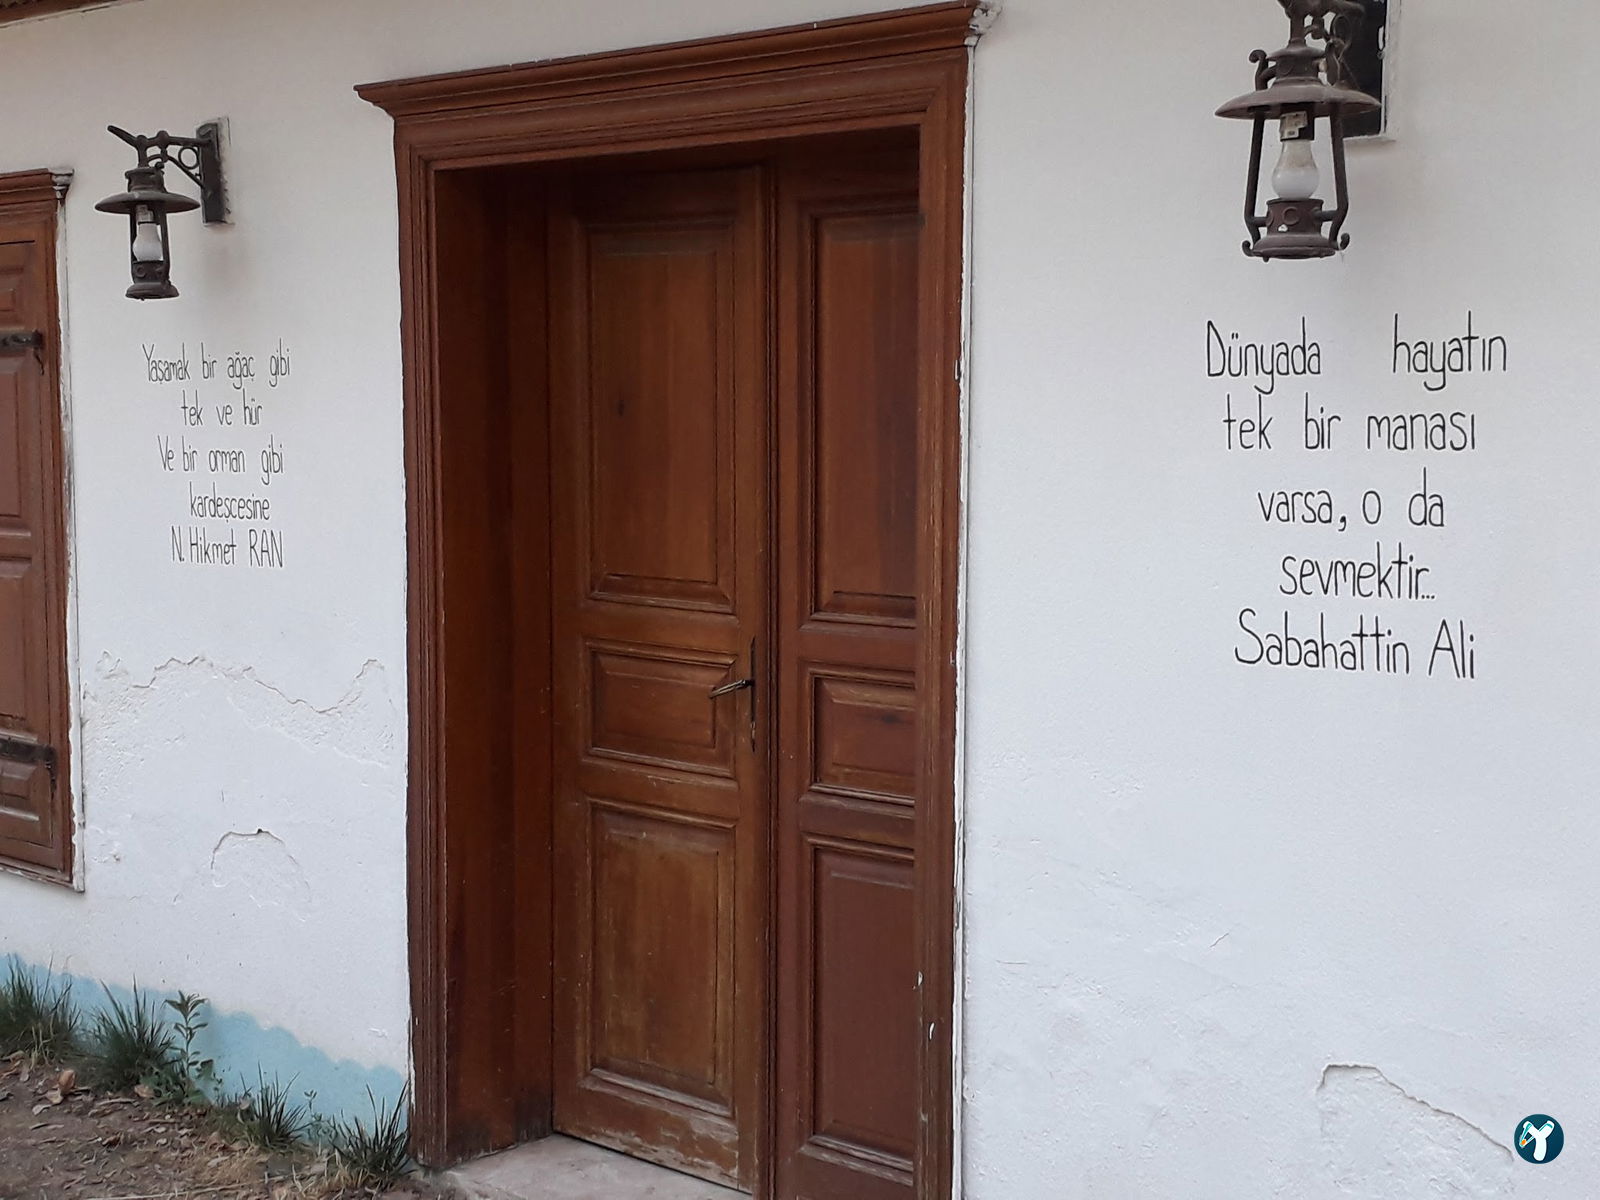 Yaşamak bir ağaç gibi
tek ve hür
Ve bir orman gibi
kardeşcesine
N. Hikmet RAN
Dünyada hayatın
tek bir manası
varsa, o da
sevmektir...
Sabahattin Ali